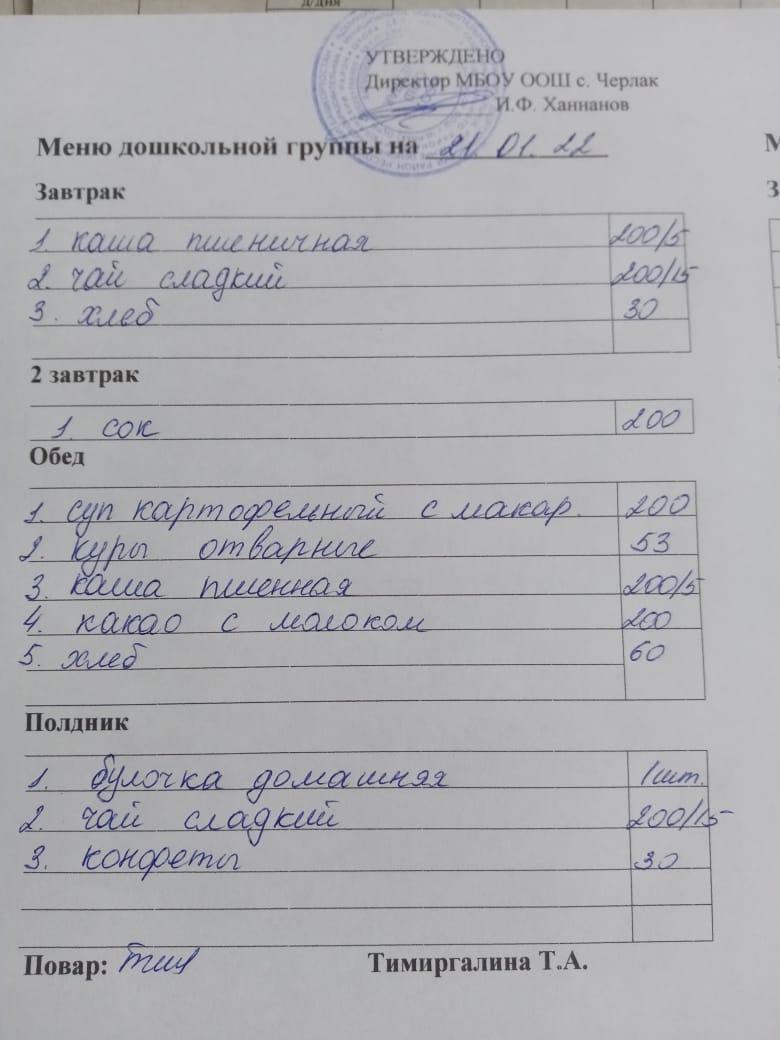 д/дня
УТВЕРЖДЕНО
Директор МБОУ ООШ с. Черлак
И.Ф. Ханнанов
Меню дошкольной группы на 21. 01. 22
Завтрак
1. каша пшеничная 200/5
2. чай сладкий 200/15
3. хлеб 30
2 завтрак
1. сок 200
Обед
1. суп картофельный с макар. 200
2. куры отварные 53
3. каша пшенная 200/5
4. какао с молоком 200
5. хлеб 60
Полдник
1. булочка домашняя 1шт.
2. чай сладкий 200/15
3. конфеты 30
Повар: Тимиргалина Т.А.
М
З